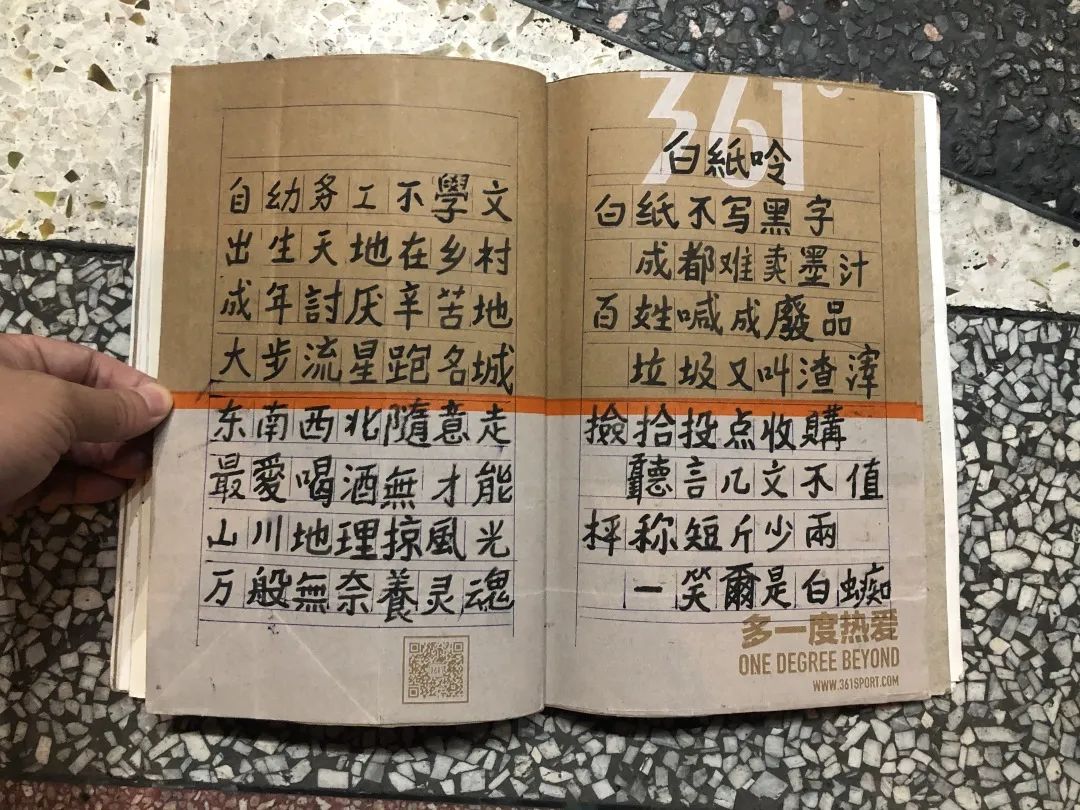 自幼务工不學文
出生天地在乡村
成年討厌辛苦地
大步流星跑名城
东南西北隨意走
最愛喝酒無才能
山川地理掠風光
万般無奈養灵魂
361°
白紙呤
白纸不写黑字
成都难卖墨汁
百姓喊成廢品
垃圾又叫渣滓
撿拾投点收購
聽言几文不值
抨称短斤少兩
一笑爾是白蝴
多一度热爱
ONE DEGREE BEYOND
WWW.361SPORT.COM